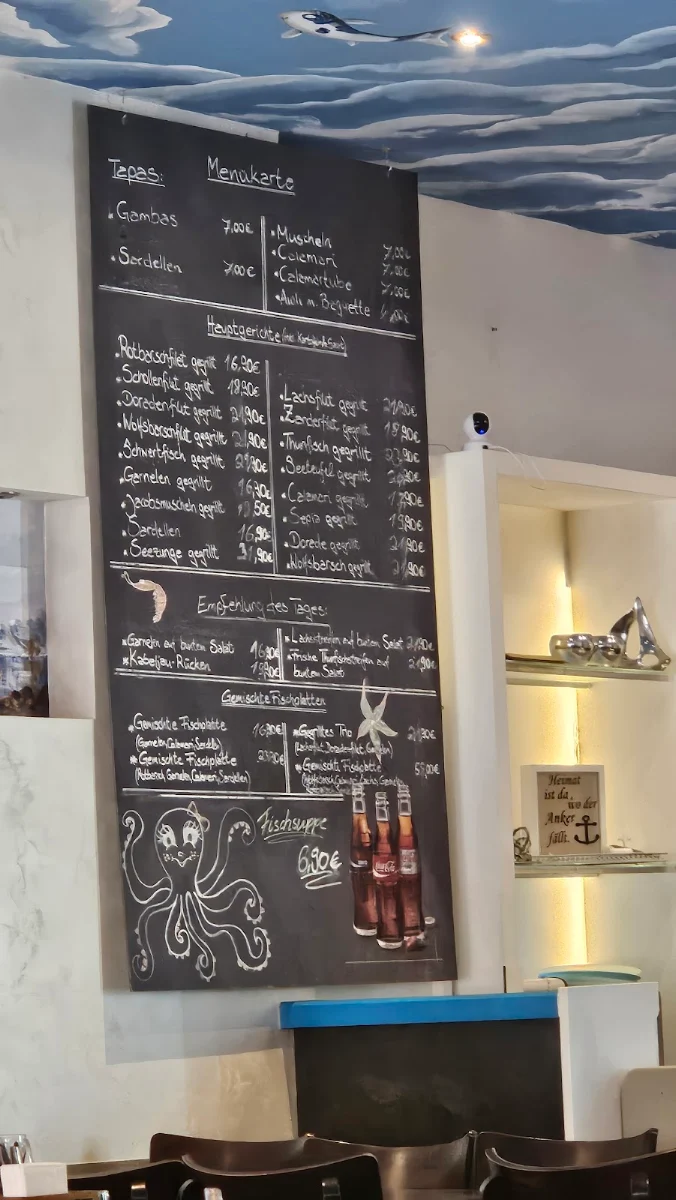 Tapas: Menükarte
Gambas 7,00€
Sardellen 7,00€
Muscheln 7,00€
Calamari 7,00€
Calamartube 7,00€
Aioli m. Baguette
Hauptgerichte
Rotbarschfilet gegrillt 16,90€
Schollenfilet gegrillt 18,90€
Doradenfilet gegrillt 21,90€
Wolfsbarschfilet gegrillt 21,90€
Schwertfisch gegrillt
Garnelen gegrillt
Jacobsmuscheln gegrillt
Sardellen 16,90€
Seezunge gegrillt 31,90€
Lachsfilet gegrillt 21,90€
Zanderfilet gegrillt 18,90€
Thunfisch gegrillt 23,90€
Seeteufel gegrillt
Calamari gegrillt 17,90€
Sepia gegrillt 19,90€
Dorade gegrillt 21,90€
Wolfsbarsch gegrillt
Empfehlung des Tages:
Garnelen auf buntem Salat 16,90€
Kabeljau-Rücken 19,90€
Lachsstreifen auf buntem Salat 21,90€
Frische Thunfischstreifen auf 21,90€
buntem Salat
Gemischte Fischplatten
Gemischte Fischplatte 16,90€
(Garnelen, Calamari, Sardellen)
Gemischte Fischplatte
(Rotbarsch, Garnelen, Calamari, Sardellen)
Gegrilltes Trio
(Lachsfilet, Doradenfilet, Garnelen)
Gemischte Fischplatte
Fischsuppe
6,90€
Coca-Cola
Heimat
ist da,
wo der
Anker
fällt.